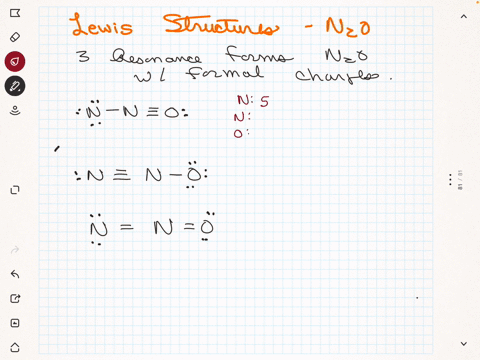 Lewis Structures - N₂O
3 Resonance forms N₂O
w/ formal charges.
:N̤̈ - N ≡ O:
N: 5
N:
O:
:N ≡ N - Ö̤:
N̤̈ = N = Ö̤
18 / 18